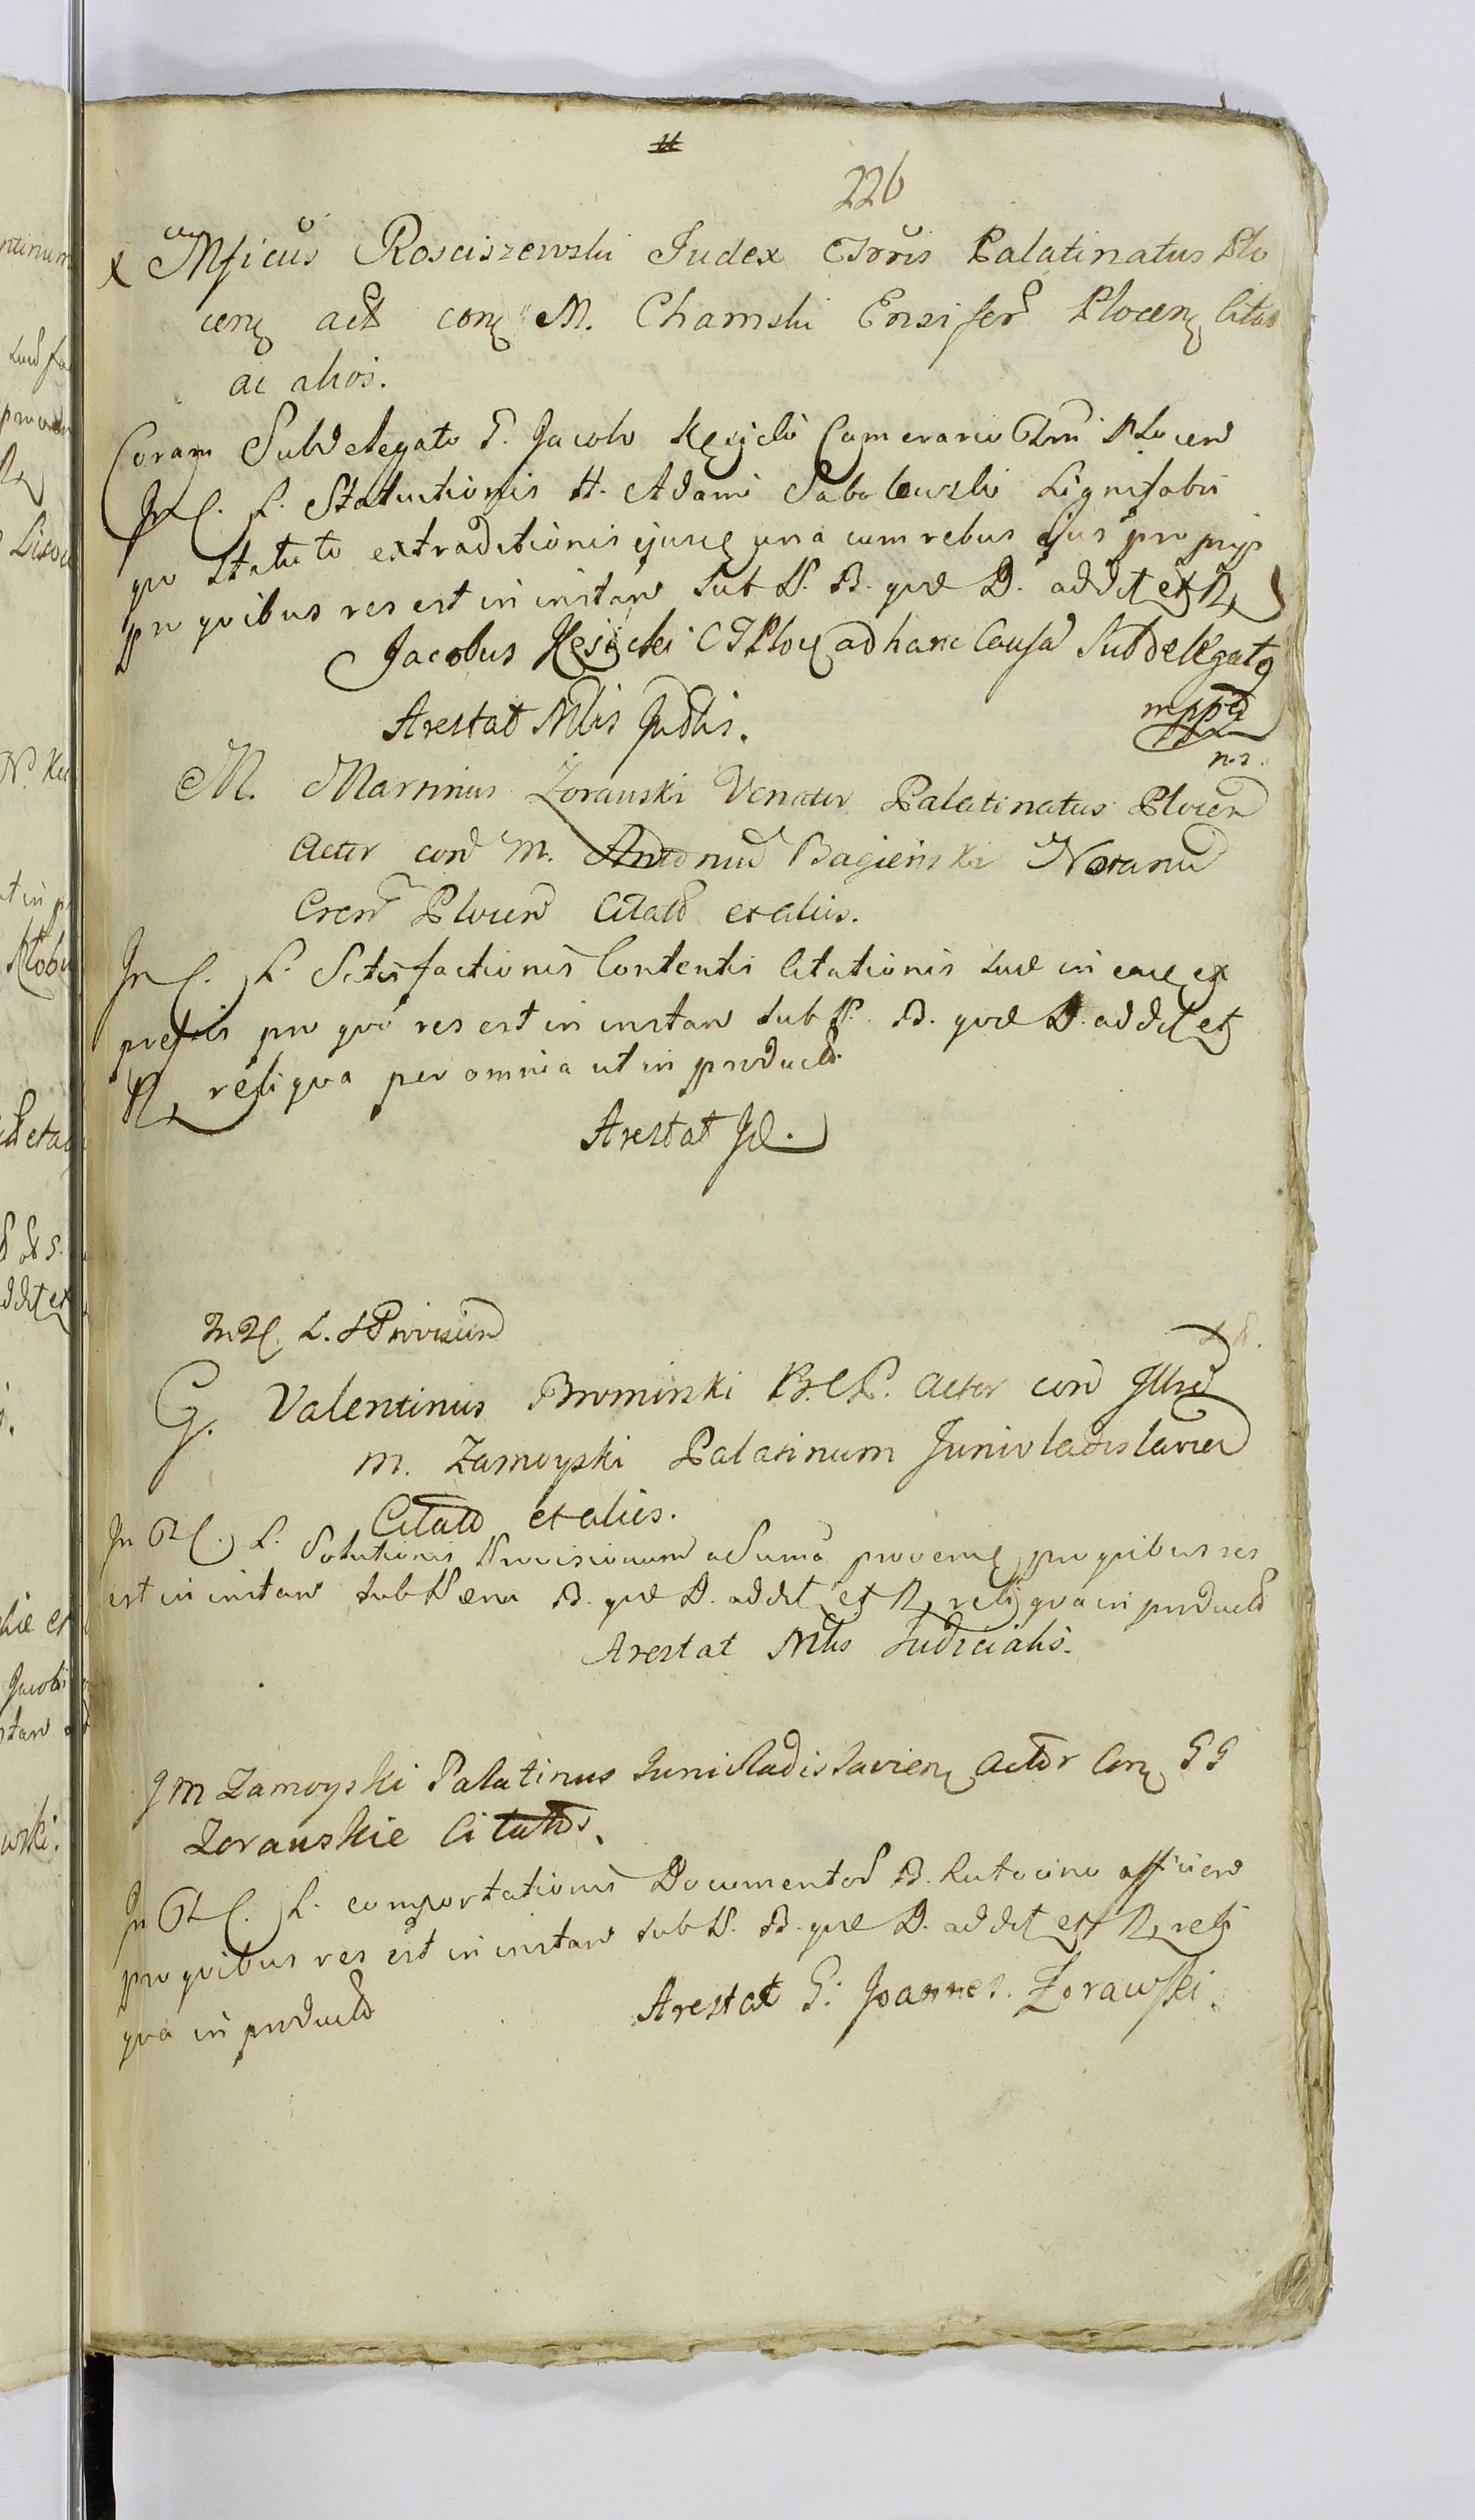 226
x Mficus Rosciszewski Judex Crris Palatinatus Plo
cen act con M. Chamski Ensifer Plocen Citat
ac alios.
Coram Subdelegato G. Jacobo Kęsicki Camerario Plocen
In C. L. Statuitionis H. Adami Sabolewski Lignifabri
pro Statuto extraditionis ejusq una cum rebus ejus propriis
pro quibus res est in instan sub P. B. que D. addit et R
Jacobus Kęsicki CGPloc ad hanc Causa Subdelegatq
mppa
Arestat Mtis Judlis.
M. Martinus Zorauski Venator Palatinatus Plocen
Actor con M. Antonium Bagieński Notariu
Cren Plocen Citato et aliis.
In C. L. Satisfactionis Contentis Citationis sue in eaq ex
pressis pro quo res est in instan sub P. B. que D. addit et
R reliqua per omnia ut in producto
Arestat Jd.
L. Provision
G. Valentinus Brominski B.C.P. Actor con Illre
M. Zamoyski Palatinum Junivladislavien
Citato et aliis.
In C. L. Solutionis Provisionum a Suma provenien pro quibus res
est in instan sub Pena B. que D. addit et R reliqua in producto
Arestat Mtis Judicialis.
J M Zamoyski Palatinus Junivladislavien Actor Con GG
Zorauskie Citatos.
In C. L. comportationis Documentor B. Lutocino afficien
pro quibus res est in instan sub P. B. que D. addit et R reli
qua in producto
Arestat G. Joannes Zorawski.